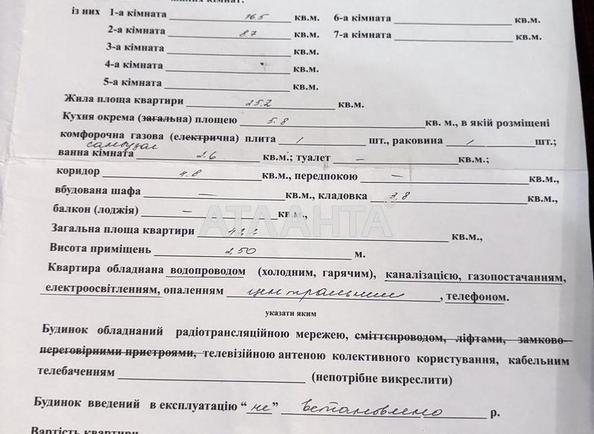 із них 1-а кімната 16.5 кв.м. 6-а кімната кв.м.
2-а кімната 8.7 кв.м. 7-а кімната кв.м.
3-а кімната кв.м.
4-а кімната кв.м.
5-а кімната кв.м.
Жила площа квартири 25.2 кв.м.
Кухня окрема (загальна) площею 5.8 кв. м., в якій розміщені
комфорочна газова (електрична) плита 1 шт., раковина 1 шт.;
санвузол
ванна кімната 2.6 кв.м.; туалет — кв.м.;
коридор 4.8 кв.м., передпокою — кв.м.,
вбудована шафа — кв.м., кладовка 2,8 кв.м.,
балкон (лоджія) — кв.м.,
АТЛАНТА
Загальна площа квартири кв.м.,
Висота приміщень 2.50 м.
Квартира обладнана водопроводом (холодним, гарячим), каналізацією, газопостачанням,
електроосвітленням, опаленням центральним, телефоном.
указати яким
Будинок обладнаний радіотрансляційною мережею, сміттєпроводом, ліфтами, замково-
переговірними пристроями, телевізійною антеною колективного користування, кабельним
телебаченням (непотрібне викреслити)
Будинок введений в експлуатацію “не” встановлено р.
Вартість квартири